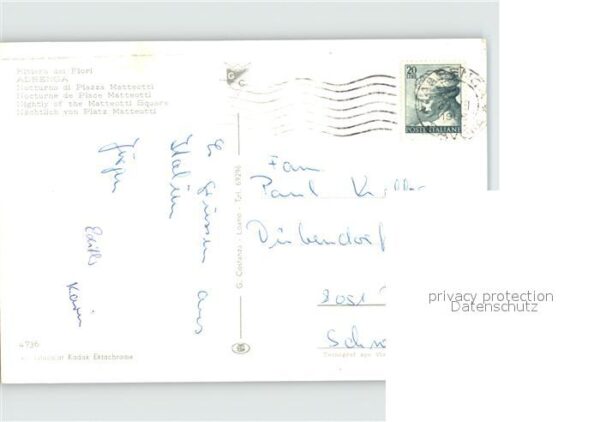 Riviera dei Fiori
ALBENGA
Notturno di Piazza Matteotti
Nocturne de Place Matteotti
Nightly of the Matteotti Square
Nächtlich von Platz Matteotti
G C
20
LIRE
POSTE ITALIANE
Es Grüssen aus
Italien
Jürgen
Edith
Karin
G. Costanza - Loano - Tel. 69296
Fam
Paul
Dübendorf
8051
Schw
privacy protection
Datenschutz
4736
Kodak Ektachrome